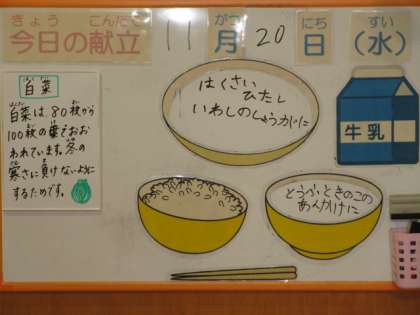 きょう こんだて がつ にち すい
今日の献立 11月20日(水)
白菜
白菜は80枚から
100枚の葉でおお
われています。冬の
寒さに負けないように
するためです。
はくさい
ひたし
いわしのしょうがに
牛乳
とうふときのこの
あんかけに